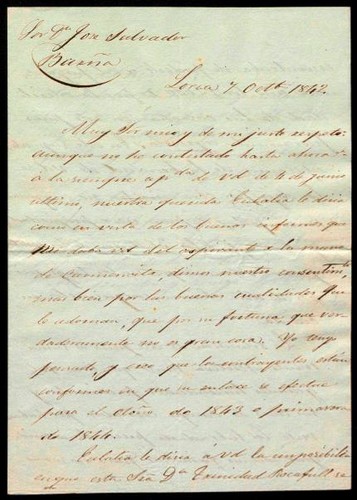 Sor Dn José Salvador
Baena
Lorca 7 Octe 1842.
Muy Sor mio y de mi justo respeto:
aunque no he contestado hasta ahora
á la siempre apda de Vd de 16 de junio
ultimo, nuestra querida Eulalia le diria
como en vista de los buenos informes que
daba Vd del aspirante a la mano
de Carmencita, dimos nuestro consentimto
mas bien por las buenas cualidades que
le adornan, que por su fortuna que ver-
daderamente no es gran cosa. Yo tengo
pensado, y creo que los contrayentes están
conformes en que su enlace se efectue
para el Otoño de 1843 o primavera
de 1844.
Eulalia le diria á Vd la imposibilidad
en que esta Sra Da Trinidad Rocafull se